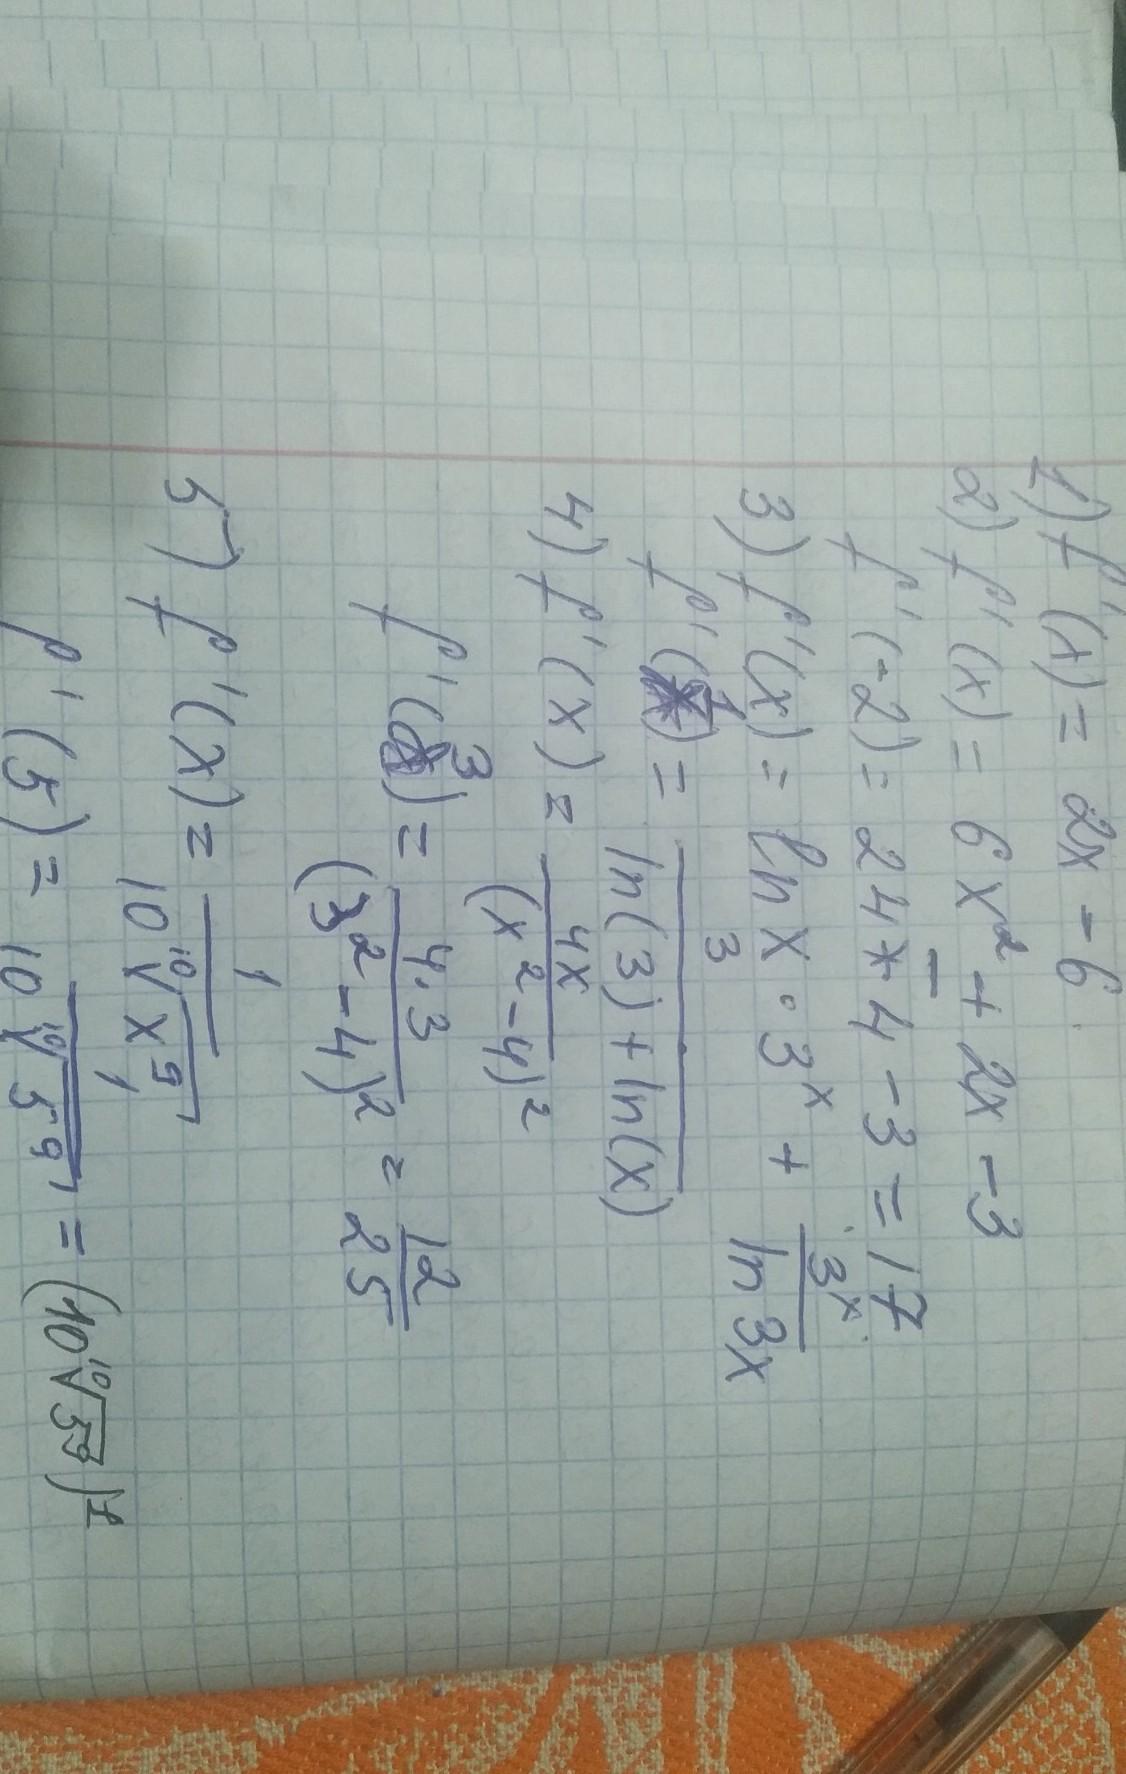 1) f'(x) = 2x - 6
2) f'(x) = 6x² + 2x - 3
f'(-2) = 24 * 4 - 3 = 17
3) f'(x) = ln x · 3ˣ + 3ˣ / ln 3x
f'(1) = 3 / (ln(3) + ln(x))
4) f'(x) = 4x / (x² - 4)²
f'(3) = 4·3 / (3² - 4)² = 12 / 25
5) f'(x) = 1 / (10 ¹⁰√x⁹)
f'(5) = 1 / (10 ¹⁰√5⁹) = (10 ¹⁰√5⁹)